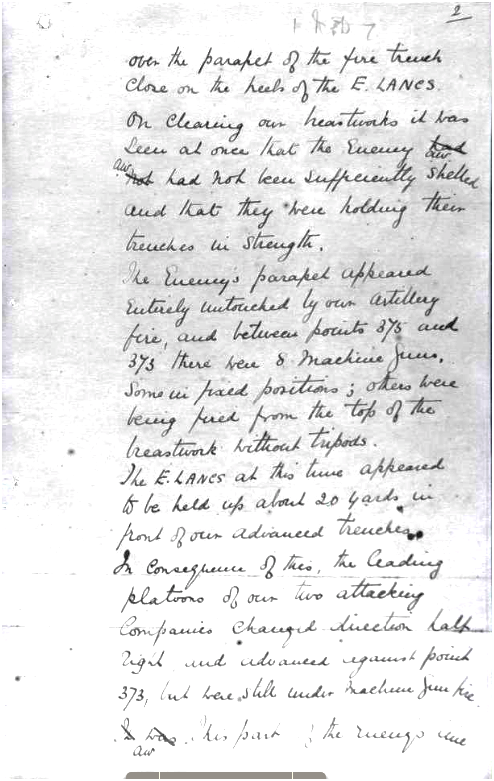 2
over the parapet of the fire trench
close on the heels of the E. LANCS.
On clearing our breastworks it was
seen at once that the Enemy had
aw not had not been sufficiently aw shelled
and that they were holding their
trenches in strength.
The Enemy's parapet appeared
entirely untouched by our artillery
fire, and between points 375 and
373 there were 8 Machine Guns,
Some in fixed positions; others were
being fired from the top of the
breastwork without tripods.
The E. LANCS at this time appeared
to be held up about 20 yards in
front of our advanced trenches.
In consequence of this, the leading
platoons of our two attacking
Companies changed direction half
right and advanced against point
373, but were still under machine gun fire.
In was This part of the Enemys line
aw